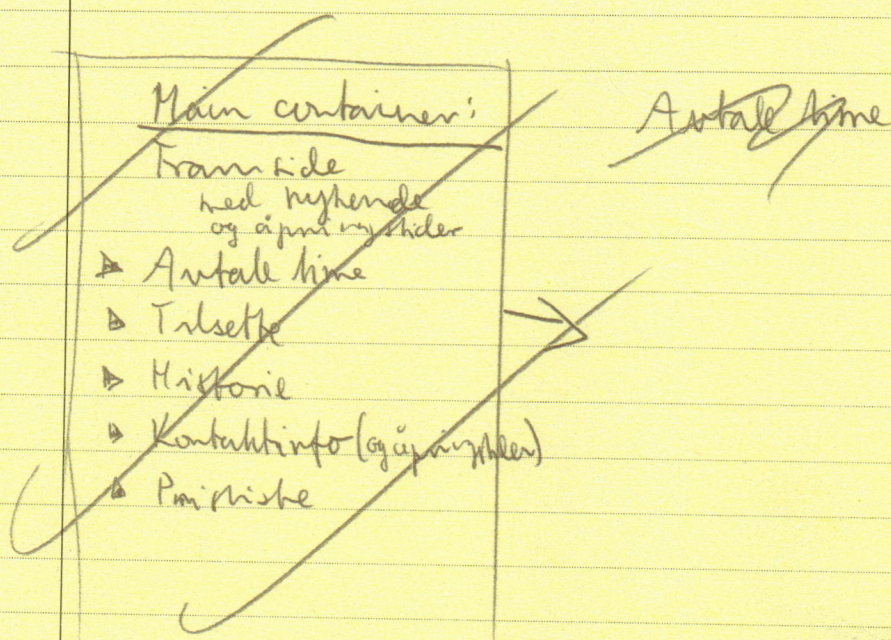 Main container:
Framside
med nyhende
og åpningstider
Avtale time
Tilsette
Historie
Kontaktinfo (og åpningstider)
Prisliste
Avtale time